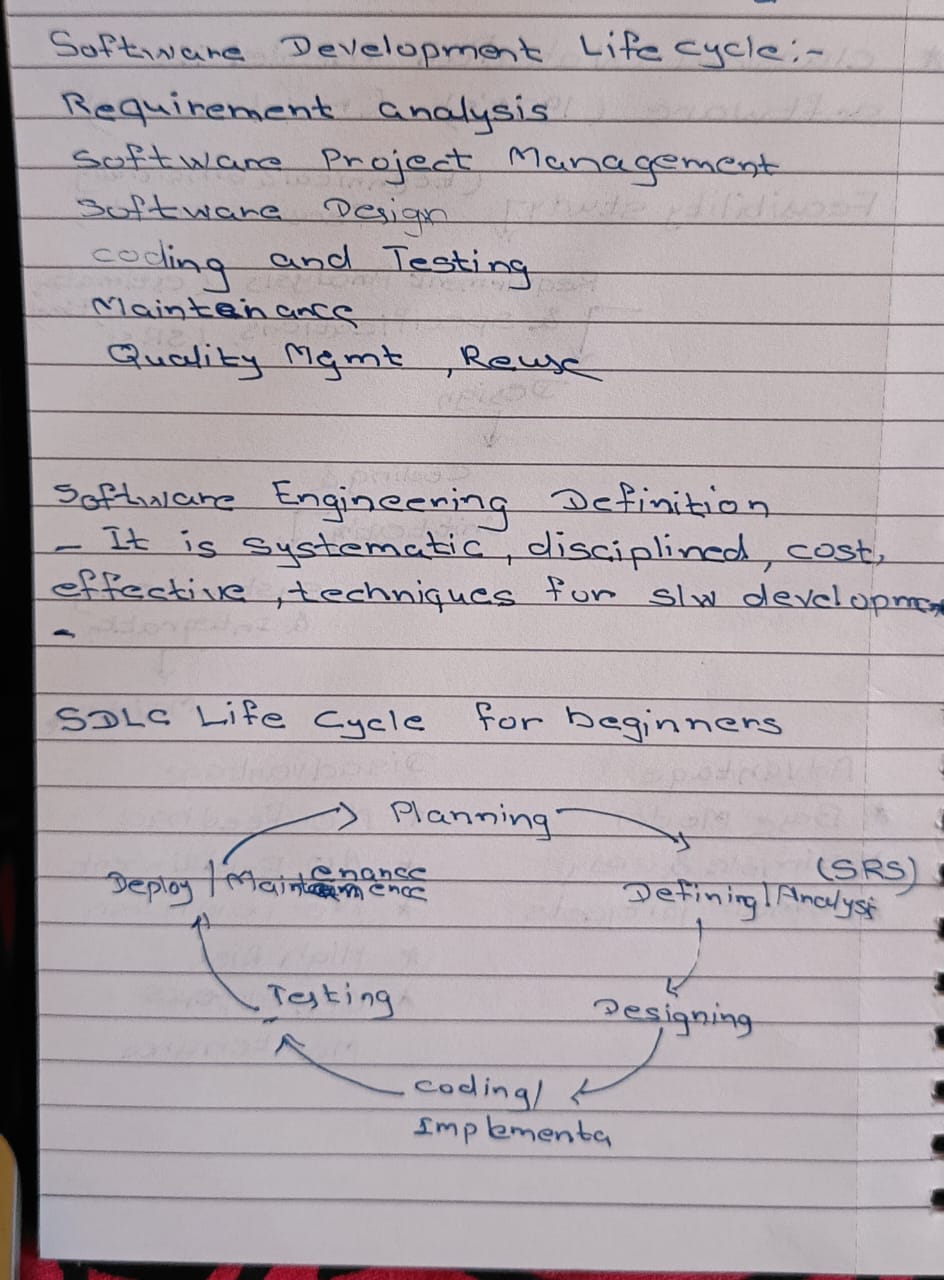 Software Development Life cycle:-
Requirement analysis
Software Project Management
Software Design
coding and Testing
Mainteinance
Quality Mgmt , Reuse
Software Engineering Definition
- It is systematic, disciplined, cost,
effective, techniques for s/w developme
-
SDLC Life Cycle for beginners
Planning
(SRS)
enance
Deploy / Maintenence
Defining / Analysi
Testing
Designing
coding/
Implementa